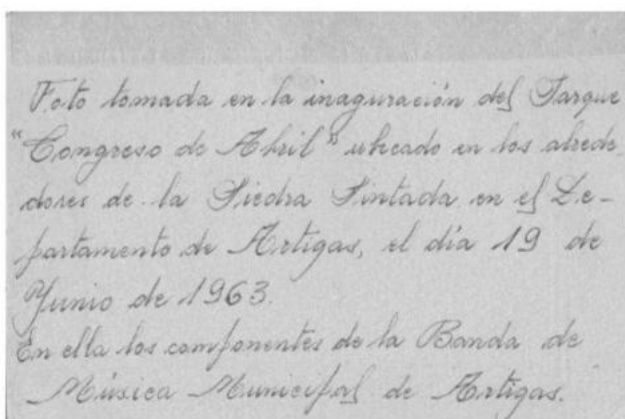 Foto tomada en la inaguración del Parque
"Congreso de Abril" ubicado en los alrede-
dores de la Piedra Pintada en el De-
partamento de Artigas, el día 19 de
Junio de 1963.
En ella los componentes de la Banda de
Música Municipal de Artigas.